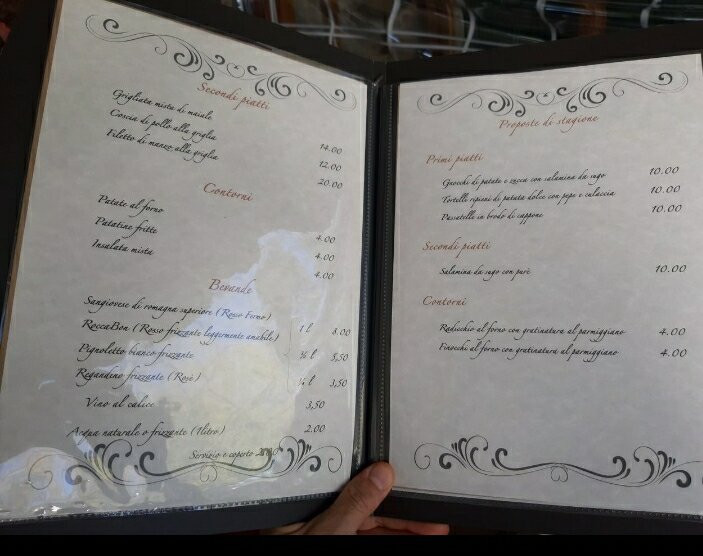 Secondi piatti
Grigliata mista di maiale 14.00
Coscia di pollo alla griglia 12.00
Filetto di manzo alla griglia 20.00
Contorni
Patate al forno 4.00
Patatine fritte 4.00
Insalata mista 4.00
Bevande
Sangiovese di romagna superiore (Rosso Fermo) 1 l 8.00
RoccaBon (Rosso frizzante leggermente amabile) ½ l 5,50
Pignoletto bianco frizzante ¼ l 3,50
Regandino frizzante (Rosè)
Vino al calice 3,50
Acqua naturale o frizzante (1litro) 2.00
Servizio e coperto
Proposte di stagione
Primi piatti
Gnocchi di patate e zucca con salamina da sugo 10.00
Tortelli ripieni di patata dolce con pepe e culaccia 10.00
Passatelli in brodo di cappone 10.00
Secondi piatti
Salamina da sugo con purè 10.00
Contorni
Radicchio al forno con gratinatura al parmiggiano 4.00
Finocchi al forno con gratinatura al parmiggiano 4.00